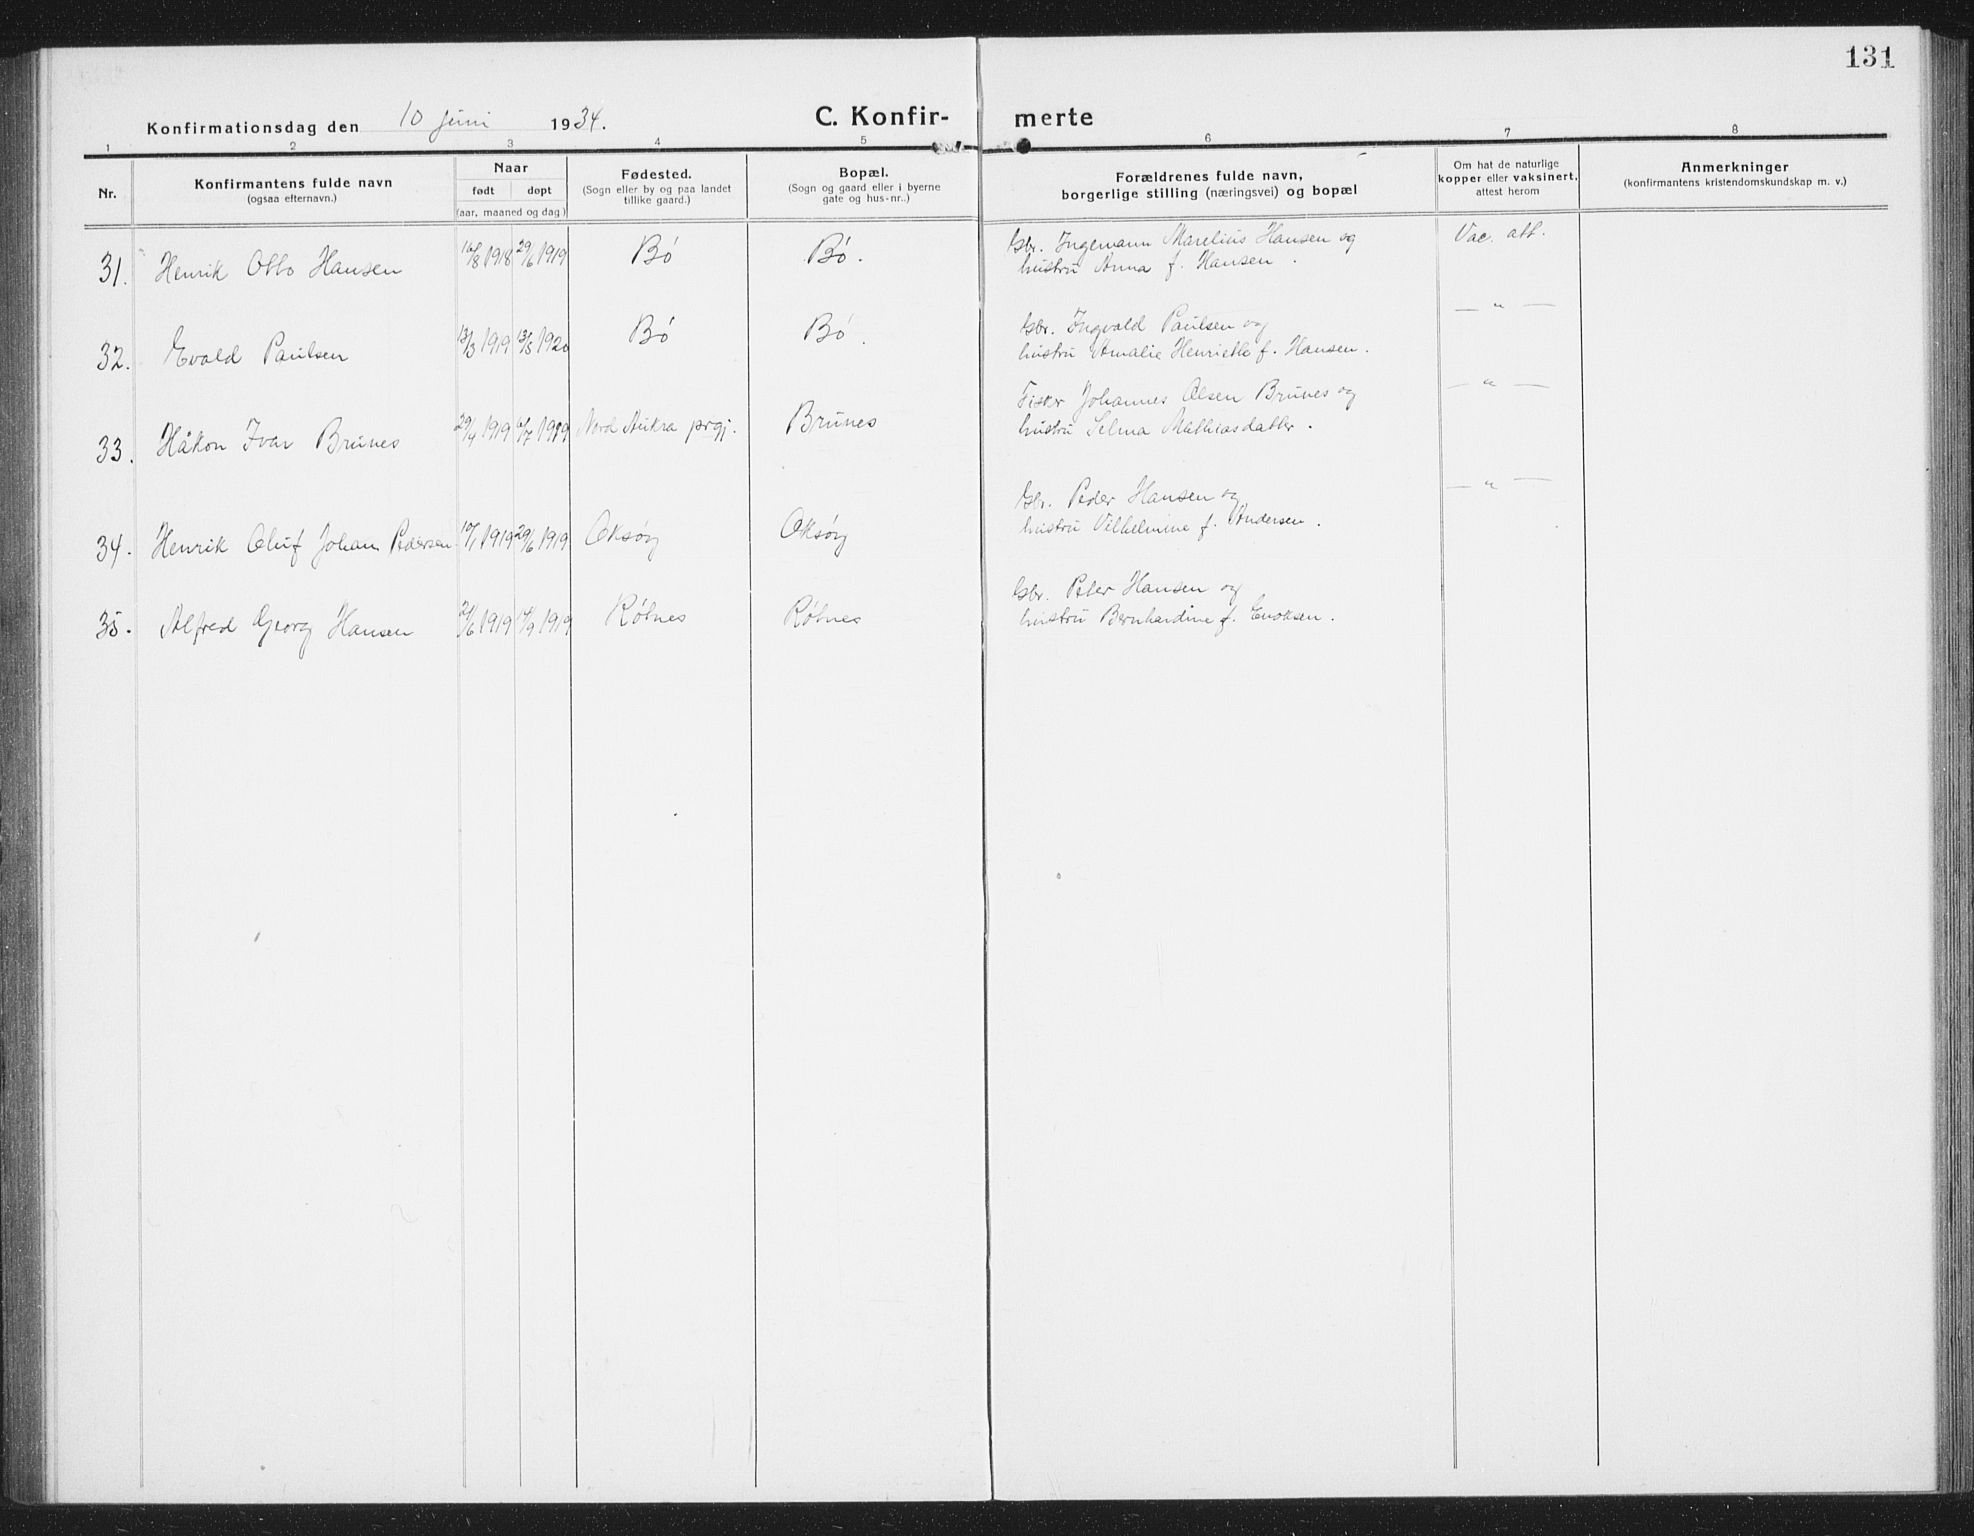 131
Konfirmationsdag den 10 juni 1934.
C. Konfirmerte
1 2 3 4 5 6 7 8
Nr.
Konfirmantens fulde navn
(ogsaa efternavn.)
Naar
født døpt
(aar, maaned og dag)
Fødested.
(Sogn eller by og paa landet
tillike gaard.)
Bopæl.
(Sogn og gaard eller i byerne
gate og hus-nr..)
Forældrenes fulde navn,
borgerlige stilling (næringsvei) og bopæl
Om hat de naturlige
kopper eller vaksinert,
attest herom
Anmerkninger
(konfirmantens kristendomskundskap m. v.)
31. Henrik Otto Hansen 16/8 1918 29/6 1919 Bó Bó. Gbr. Ingemann Marelius Hansen og
hustru Anna f. Hansen. Vac. att.
32. Evald Paulsen 13/3 1919 13/5 1920 Bó Bó. Gbr. Ingvald Paulsen og
hustru Amalie Henriette f. Hansen. — " —
33. Håkon Ivar Brunes 29/4 1919 6/7 1919 Nord Aukra prgj. Brunes Fisker Johannes Olsen Brunes og
hustru Selma Mathiasdatter. — " —
34. Henrik Oluf Johan Pedersen 10/1 1919 29/6 1919 Oksóy Oksóy Gbr. Peder Hansen og
hustru Vilhelmine f. Andersen. — " —
35. Alfred Georg Hansen 21/6 1919 14/9 1919 Rótnes Rótnes Gbr. Peter Hansen og
hustru Bernhardine f. Enoksen.